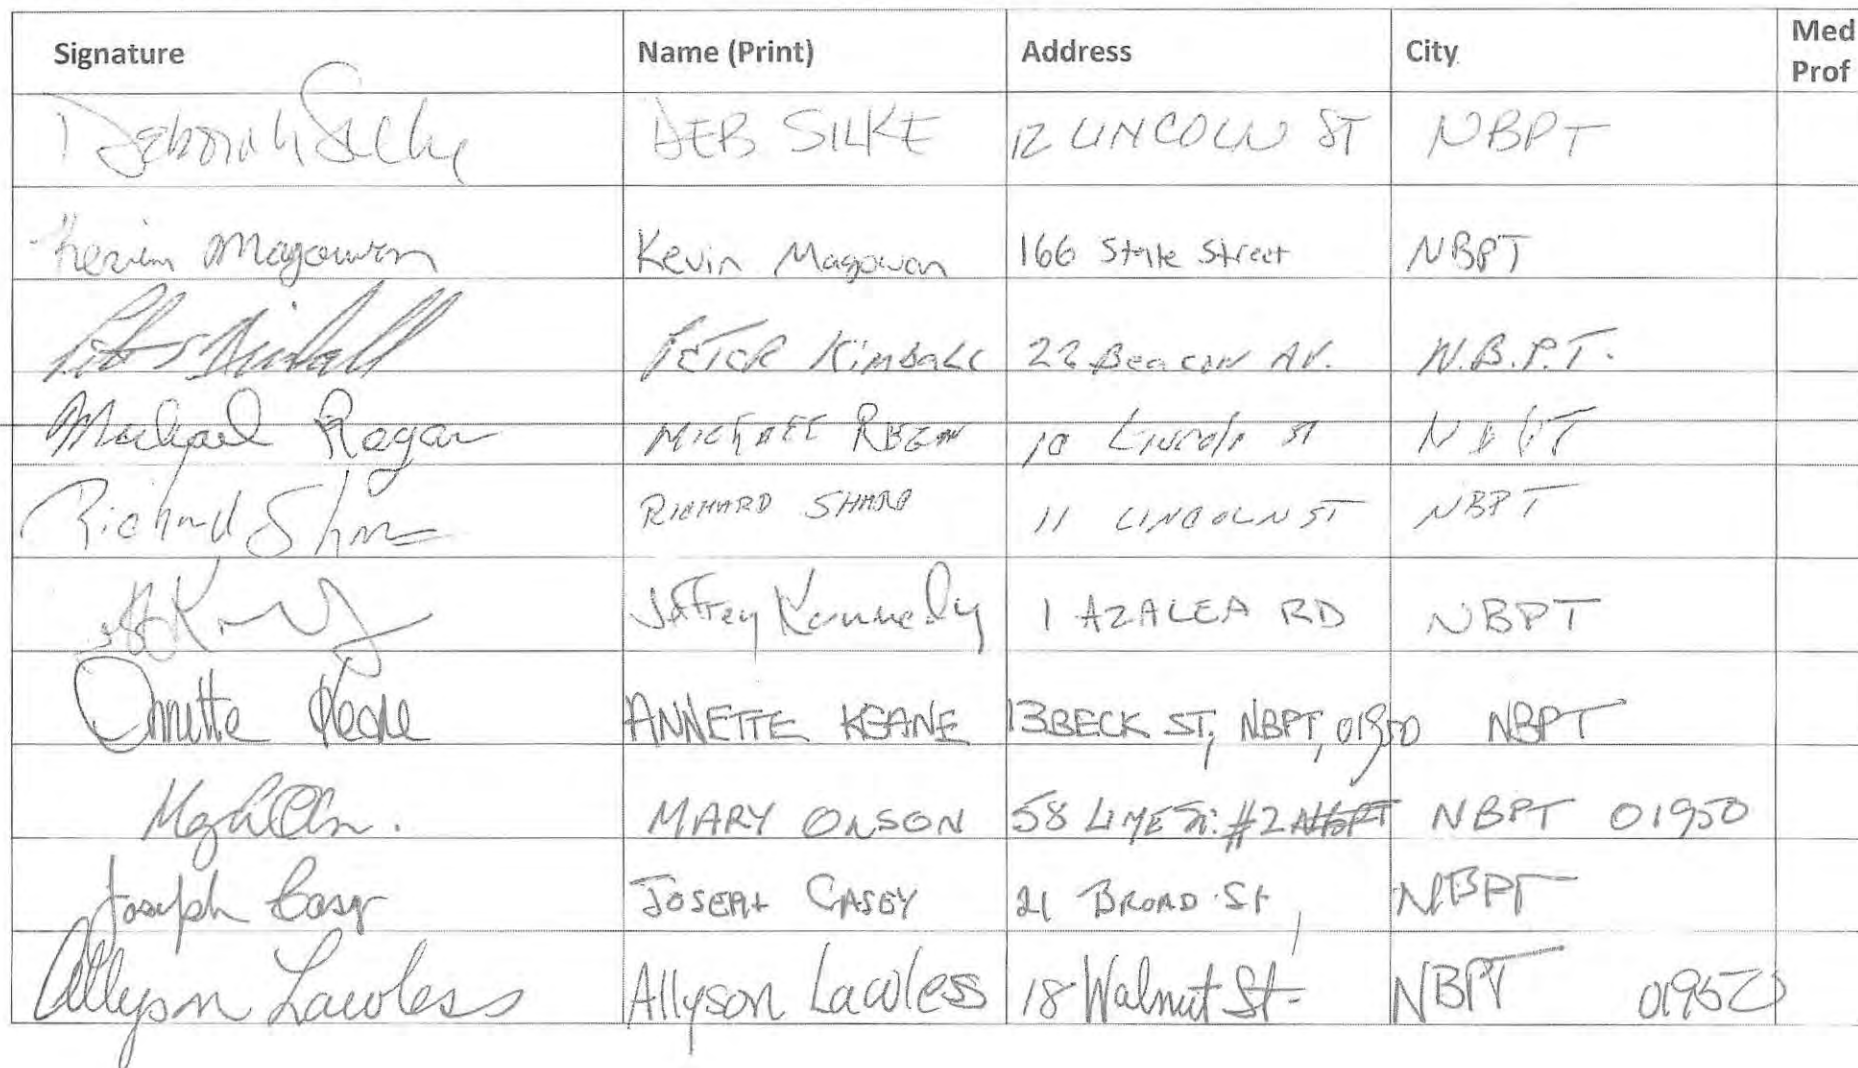 Signature Name (Print) Address City Med Prof
Deborah Silke DEB SILKE 12 LINCOLN ST NBPT
Kevin Magowan Kevin Magowan 166 State Street NBPT
Peter S Kimball PETER KimBALL 22 BeaCON AV. N.B.P.T.
Michael Regan MICHAEL REGAN 10 Lincoln St NBPT
Richard Sharp RICHARD SHARP 11 LINCOLN ST NBPT
Jeffrey Kennedy 1 AZALEA RD NBPT
Annette Keane ANNETTE KEANE 13 BECK ST, NBPT, 01950 NBPT
MARY OLSON 58 LIME ST. #2 NBPT 01950
Joseph Casey JOSEPH CASEY 21 BROAD St, NBPT
Allyson Lawless Allyson Lawless 18 Walnut St. NBPT 01950